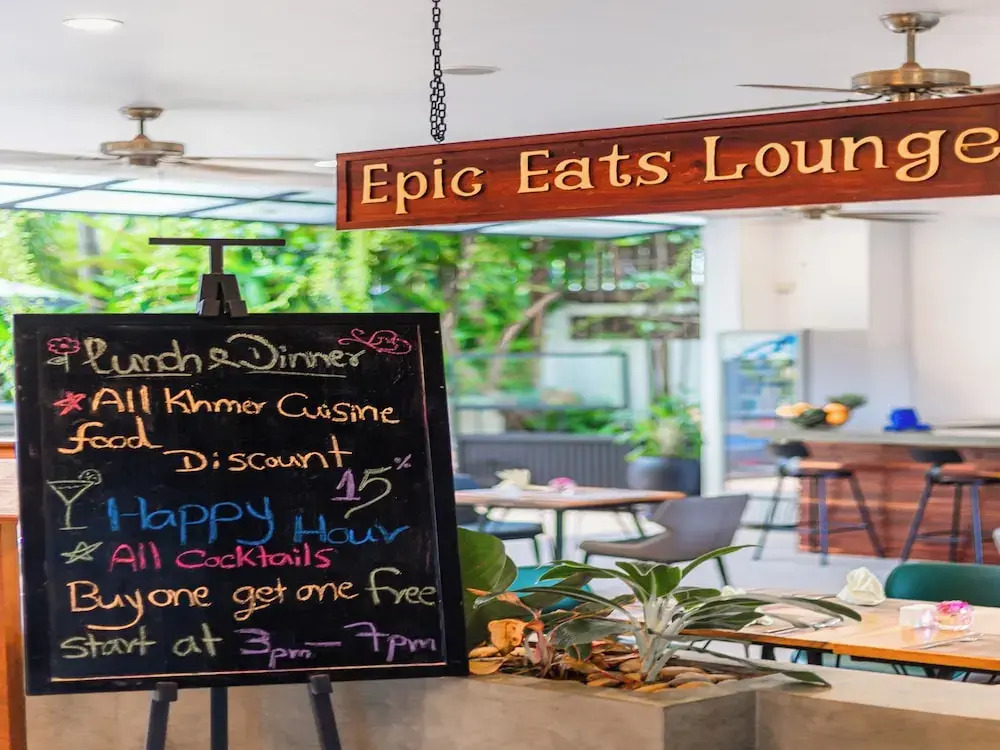 Epic Eats Lounge
Lunch & Dinner
All Khmer Cuisine
food
Discount
15%
Happy Hour
All Cocktails
Buy one get one free
start at 3pm - 7pm